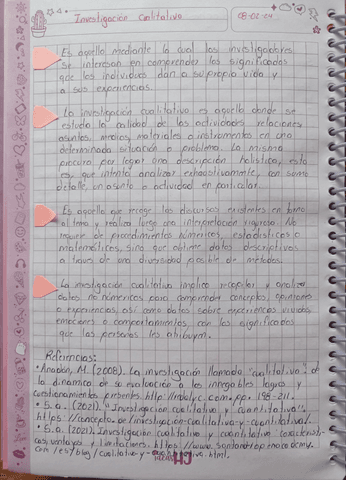 Investigación Cualitativa
08-02-24
Es aquella mediante la cual los investigadores
se interesan en comprender los significados
que los individuos dan a su propia vida y
a sus experiencias.
La investigación cualitativa es aquella donde se
estudia la calidad de las actividades, relaciones,
asuntos, medios, materiales o instrumentos en una
determinada situación o problema. La misma
procura por lograr una descripción holística, esto
es, que intenta analizar exhaustivamente, con sumo
detalle, un asunto o actividad en particular.
Es aquella que recoge los discursos existentes en torno
al tema y realiza luego una interpretación rigurosa. No
requiere de procedimientos numéricos, estadísticos o
matemáticos, sino que obtiene datos descriptivos
a traves de una diversidad posible de métodos.
La investigación cualitativa implica recopilar y analizar
datos no numéricos para comprender conceptos, opiniones
o experiencias, así como datos sobre experiencias vividas,
emociones o comportamientos, con los significados
que las personas les atribuyen.
Referencias:
• M. (2008). La investigación llamada "cualitativa": de
la dinámica de su evaluación a los innegables logros y
cuestionamientos presentes. pp. 198-211.
• S.a. (2021). "Investigación cualitativa y cuantitativa".
https://concepto.de/investigacion-cualitativa-y-cuantitativa/.
• S.a. (2021). Investigación cualitativa y cuantitativa: característi-
cas, ventajas y limitaciones. https://www.
com/es/blog/cualitativa-y-cuantitativa.html.